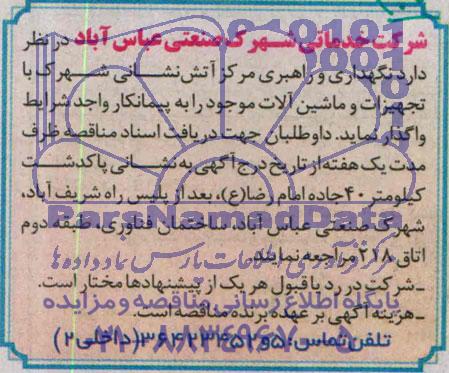 شرکت خدماتی شهرک صنعتی عباس آباد در نظر
دارد نگهداری و راهبری مرکز آتش‌نشانی شهرک با
تجهیزات و ماشین آلات موجود را به پیمانکار واجد شرایط
واگذار نماید. داوطلبان جهت دریافت اسناد مناقصه ظرف
مدت یک هفته از تاریخ درج آگهی به نشانی پاکدشت
کیلومتر ۴۰ جاده امام رضا(ع)، بعد از پلیس راه شریف آباد،
ParsNamadData
شهرک صنعتی عباس آباد، ساختمان فناوری، طبقه دوم
اتاق ۲۱۸ مراجعه نمایند.
مرکز فرآوری اطلاعات پارس نماد داده ها
ـ شرکت در رد یا قبول هر یک از پیشنهادها مختار است.
پایگاه اطلاع رسانی مناقصه و مزایده
ـ هزینه آگهی بر عهده برنده مناقصه است.
تلفن تماس: ۵و۳۶۴۲۳۴۵۲ (داخلی ۲)